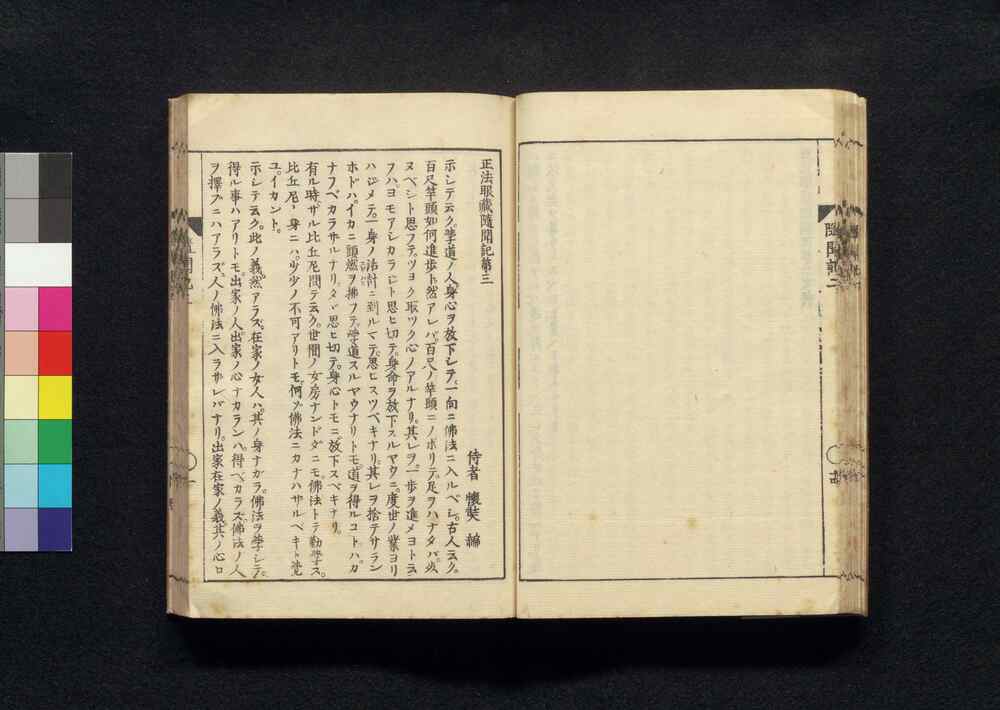 隨聞記二
正法眼藏隨聞記第三
侍者 懷奘 編
示シテ云ク。學道ノ人身心ヲ放下シテ。一向ニ佛法ニ入ルベシ。古人云ク。
百尺竿頭如何進歩ト。然アレバ。百尺ノ竿頭ニノボリテ。足ヲハナタバ。必
ヌベシト思フテ。ツヨク取ツク心ノアルナリ。其レヲ。一歩ヲ進メヨト云
フハ。ヨモアシカラジト思ヒ切テ。身命ヲ放下スルヤウニ。度世ノ業ヨリ
ハジメテ。一身ノ活計ニ到ルマデ。思ヒスツベキナリ。其レヲ捨テザラン
ホドハ。イカニ頭燃ヲ拂フテ。學道スルヤウナリトモ。道ヲ得ルコトハ。カ
ナフベカラザルナリ。タヾ思ヒ切テ。身心トモニ放下スベキナリ。
有ル時ザル比丘尼問テ云ク。世間ノ女房ナンドダニモ。佛法トテ勤學ス。
比丘尼ノ身ニハ。少少ノ不可アリトモ。何ゾ佛法ニカナハザルベキト覺
ユ。イカント。
示シテ云ク。此ノ義然アラズ。在家ノ女人ハ。其ノ身ナガラ。佛法ヲ學シテ。
得ル事ハアリトモ。出家ノ人。出家ノ心ナカランハ。得ベカラズ。佛法ノ人
ヲ擇ブニハアラズ。人ノ佛法ニ入ラザレバナリ。出家在家ノ義。其ノ心ロ